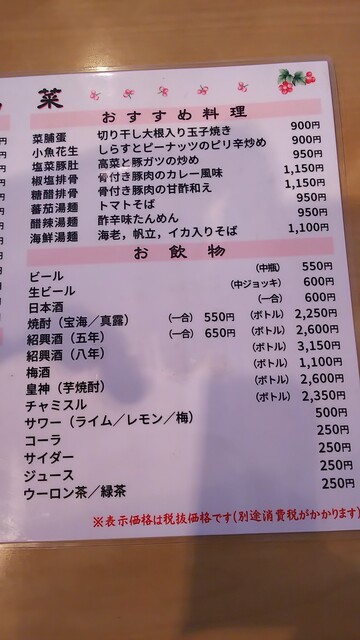 菜
おすすめ料理
菜脯蛋 切り干し大根入り玉子焼き 900円
小魚花生 しらすとピーナッツのピリ辛炒め 900円
塩菜豚肚 高菜と豚ガツの炒め 950円
椒塩排骨 骨付き豚肉のカレー風味 1,150円
糖醋排骨 骨付き豚肉の甘酢和え 1,150円
蕃茄湯麺 トマトそば 950円
醋辣湯麺 酢辛味たんめん 950円
海鮮湯麺 海老，帆立，イカ入りそば 1,100円
お飲物
ビール (中瓶) 550円
生ビール (中ジョッキ) 600円
日本酒 (一合) 600円
焼酎（宝海／真露） (一合) 550円 (ボトル) 2,250円
紹興酒（五年） (一合) 650円 (ボトル) 2,600円
紹興酒（八年） (ボトル) 3,150円
梅酒 (ボトル) 1,100円
皇神（芋焼酎） (ボトル) 2,600円
チャミスル (ボトル) 2,350円
サワー（ライム／レモン／梅） 500円
コーラ 250円
サイダー 250円
ジュース 250円
ウーロン茶／緑茶 250円
※表示価格は税抜価格です(別途消費税がかかります)